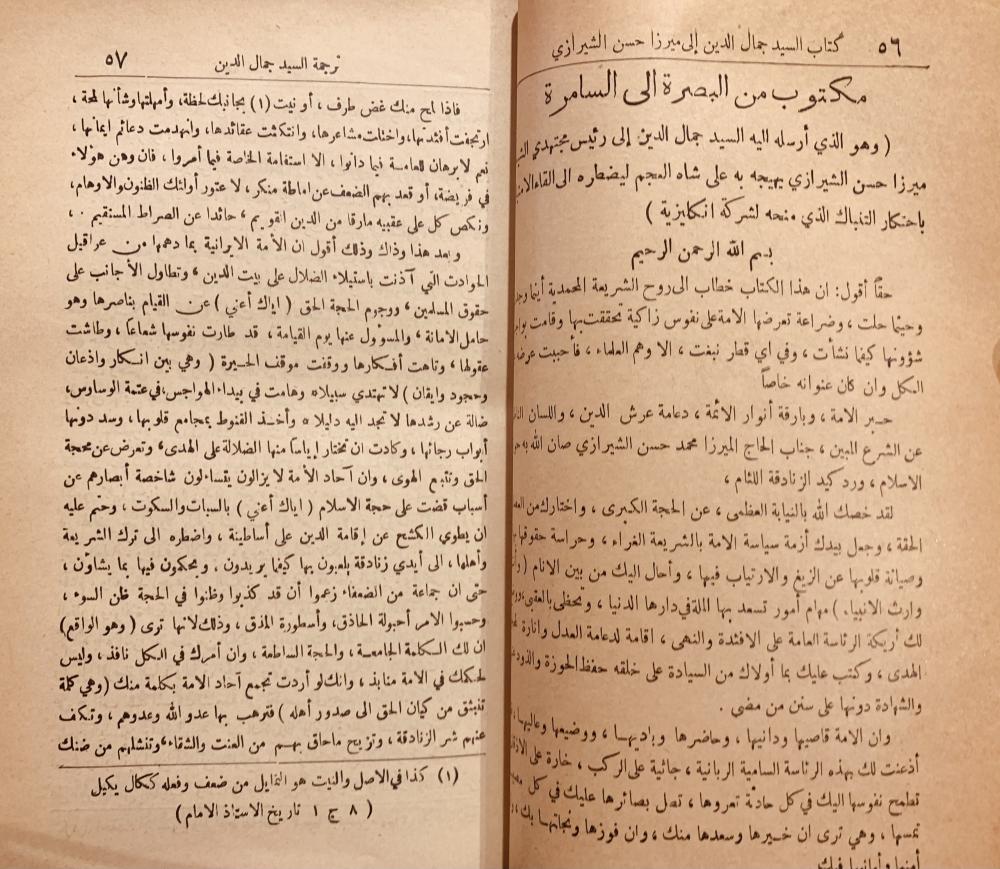 ٥٦ كتاب السيد جمال الدين إلى ميرزا حسن الشيرازي
مكتوب من البصرة الى السامرة
( وهو الذي أرسله اليه السيد جمال الدين إلى رئيس مجتهدي
ميرزا حسن الشيرازي يهيجه به على شاه العجم ليضطره الى القاء
باحتكار التنباك الذي منحه لشركة انكليزية )
بسم الله الرحمن الرحيم
حقاً أقول: ان هذا الكتاب خطاب الى روح الشريعة المحمدية أينما
وحيثما حلت ، وضراعة تعرضها الامة على نفوس زاكية تحققت بها وقامت
شؤونها كيفما نشأت ، وفي اي قطر نبغت ، الا وهم العلماء ، فأحببت
الكل وان كان عنوانه خاصاً
حـبر الامة ، وبارقة أنوار الائمة ، دعامة عرش الدين ، واللسان
عن الشرع المبين ، جناب الحاج الميرزا محمد حسن الشيرازي صان الله به
الاسلام ، ورد كيد الزنادقة اللئام ،
لقد خصك الله بالنيابة العظمى ، عن الحجة الكبرى ، واختارك من
الحقة ، وجعل بيدك أزمة سياسة الامة بالشريعة الغراء ، وحراسة حقوقها
وصيانة قلوبها عن الزيغ والارتياب فيها ، وأحال اليك من بين الانام
وارث الانبياء ) مهام أمور تسعد بها الملة في دارها الدنيا ، وتحظى بالعقبى،
لك أريكة الرئاسة العامة على الافئدة والنهى ، اقامة لدعامة العدل وانارة
الهدى ، وكتب عليك بما أولاك من السيادة على خلقه حفظ الحوزة والذود
والشهادة دونها على سنن من مضى .
وان الامة قاصيها ودانيها ، وحاضرها وباديهـا ، ووضيعها وعاليهـا ،
أذعنت لك بهذه الرئاسة السامية الربانية ، جاثية على الركب ، خارة على
تطمح نفوسها اليك في كل حادثة تعروها ، تطل بصائرها عليك في كل
تمسها ، وهي ترى ان خـيرها وسعدها منك ، وان فوزها ونجاتهـا بك ،
أمنها وأمانيها فيك
ترجمة السيد جمال الدين ٥٧
فاذا لمح منك غض طرف ، أو نيت (١) بجانبك لحظة، وأمهلتها وشأنها لمحة ،
ارتجفت أفئدتها، واختلت مشاعرها، وانتكثت عقائدها، وانهدمت دعائم ايمانها ،
نعم لا برهان للعامـة فيما دانوا ، الا استقامة الخاصة فيما أمروا ، فان وهن هؤلاء
في فريضة، أو قعد بهم الضعف عن اماطة منكر، لاعتور أولئك الظنون والاوهام،
ونكص كل على عقبيه مارقا من الدين القويم ، حائدا عن الصراط المستقيم .
وبعد هذا وذاك وذلك أقول ان الأمة الايرانية بما دهمها من عراقيل
الحوادث التي آذنت باستيلاء الضلال على بيت الدين ، وتطاول الأجانب على
حقوق المسلمين ، ووجوم الحجة الحق ( اياك أعني ) عن القيام بناصرها وهو
حامل الامانة ، والمسؤول عنها يوم القيامة ، قد طارت نفوسها شعاعا ، وطاشت
عقولها ، وتاهت أفـكارها ووقفت موقف الحـيرة ( وهي بين انـكار واذعان
وجحود وايقان ) لا تهتدي سبيلا ، وهامت في بيداء الهواجس، في عتمة الوساوس،
ضالة عن رشدها لا تجد اليه دليلا ، وأخـذ القنوط بمجامع قلوبها ، وسد دونها
أبواب رجائها ، وكادت ان تختار إياسا منها الضلالة على الهدى ، وتعرض عن محجة
الحق وتتبع الهوى ، وان آحاد الأمة لا يزالون يتساءلون شاخصة أبصارهم عن
أسباب قضت على حجة الاسلام ( اياك أعني ) بالسبات والسكوت ، وحتم عليه
ان يطوي الكشح عن إقامة الدين على أساطينة ، واضطره الى ترك الشريعة
وأهلها ، الى أيدي زنادقة يلعبون بها كيفما يريدون ، ويحكمون فيها بما يشاؤن ،
حتى ان جماعة من الضعفاء زعموا أن قد كذبوا وظنوا في الحجة ظن السوء ،
وحسبوا الامر أحبولة الحاذق، وأسطورة المذق ، وذلك لانها ترى ( وهو الواقع)
ان لك الـكلمة الجامعـة ، والحجة الساطعة ، وان أمرك في الـكل نافذ ، وليس
لحكمك في الامة منابذ ، وانك لو أردت تجمع آحاد الامة بكلمة منك ( وهي كلمة
تنبثق من كيان الحق الى صدور أهله ) فترهب بها عدو الله وعدوهم ، وتكف
عنهم شر الزنادقة ، وتزيح ماحاق بهـم من العنت والشقاء، وتنشلهم من ضنك
(١) كذا في الاصل والنيت هو التمايل من ضعف وفعله ككال يكيل
( ٨ ج ١ تاريخ الاستاذ الامام )